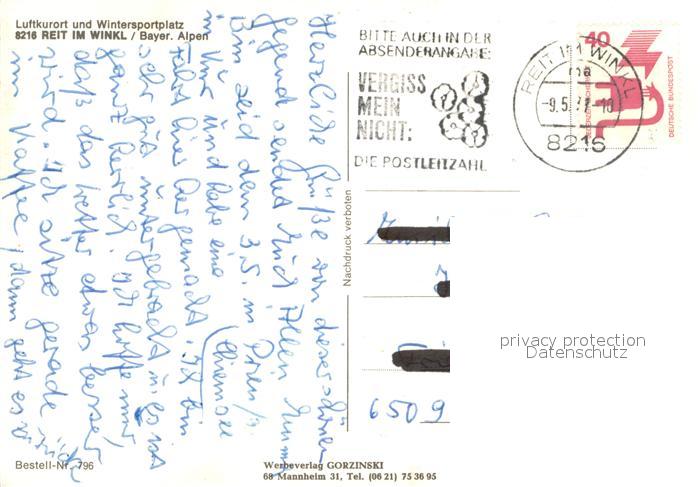 Luftkurort und Wintersportplatz
8216 REIT IM WINKL / Bayer. Alpen
BITTE AUCH IN DER
ABSENDERANGABE:
VERGISS
MEIN
NICHT:
DIE POSTLEITZAHL
REIT IM WINKL
8216
40
DEUTSCHE BUNDESPOST
Herzliche Grüße von dieser schönen
Gegend sendet Euch Allen Emma
Bin seid dem 3.5. in Prien/
Chiemsee
in Kur und habe eine
Fahrt hier her gemacht. Ich bin
sehr gut untergebracht u. es ist
ganz herrlich. Ich hoffe nur
daß das Wetter etwas besser
wird. Ich sitze gerade
im Kaffee, dann geht es zurück
Nachdruck verboten
6509
privacy protection
Datenschutz
Bestell-Nr. 796
Werbeverlag GORZINSKI
68 Mannheim 31, Tel. (06 21) 75 36 95